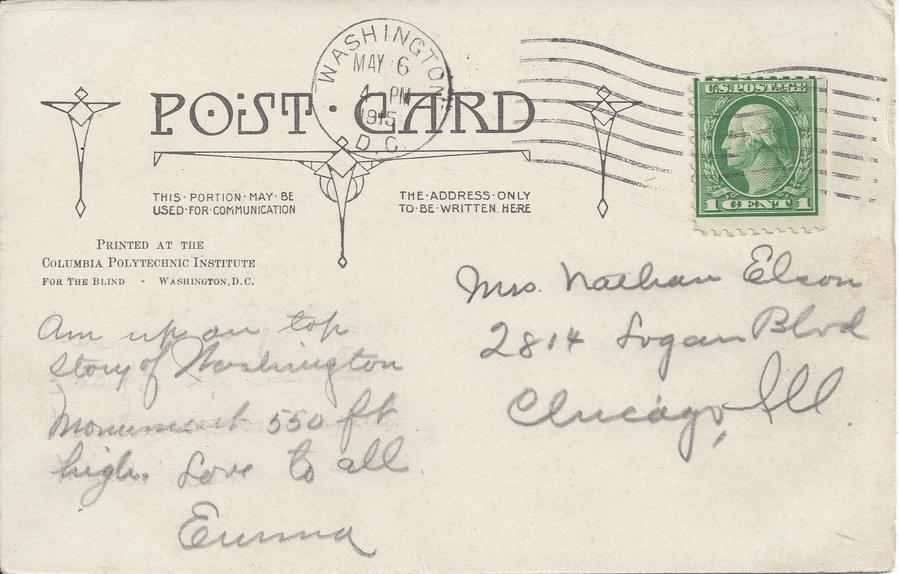 WASHINGTON,
MAY 6
4- PM
1915
D.C.
POST·CARD
U.S. POSTAGE
1 CENT 1
THIS·PORTION·MAY·BE
USED·FOR·COMMUNICATION
THE·ADDRESS·ONLY
TO·BE·WRITTEN·HERE
PRINTED AT THE
COLUMBIA POLYTECHNIC INSTITUTE
FOR THE BLIND - WASHINGTON, D.C.
Am up on top
story of Washington
Monument 550 ft
high. Love to all
Emma
Mrs. Nathan Elson
2814 Logan Blvd
Chicago, Ill